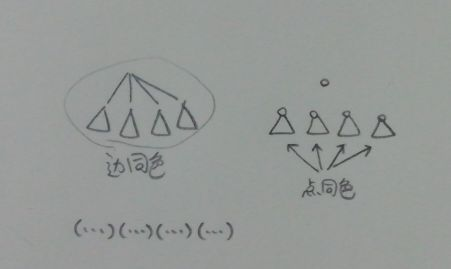 边同色
点同色
(...)(...)(...)(...)